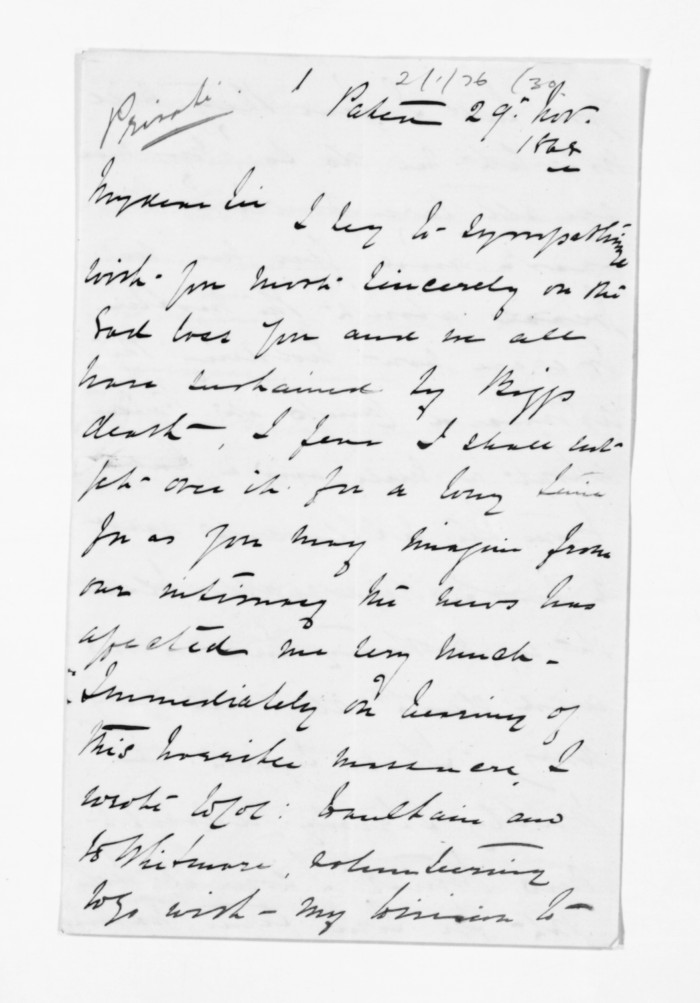 1
2/1/76 (39)
Private.
Patea 29th Nov.
1868
My dear Sir I beg to sympathize
with you most sincerely on the
sad loss you and we all
have sustained by Biggs
death, I fear I shall not
get over it for a long time
for as you may imagine from
our intimacy the news has
affected me very much -
Immediately on hearing of
this horrible massacre, I
wrote to Col: Haultain and
to Whitmore, volunteering
to go with my Division to